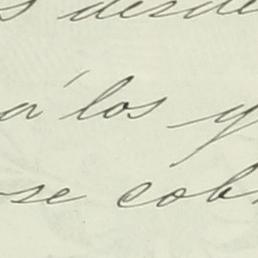 s desde
a' los y
se cob